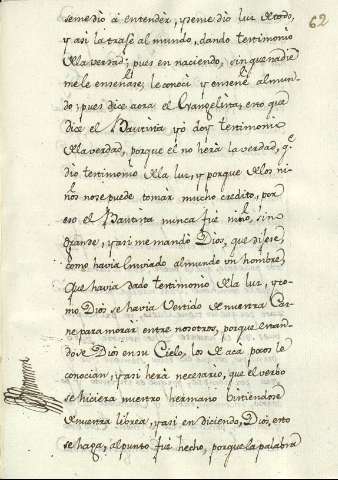 62
se me dio à entender, y se me dio luz de todo,
y asi la trase al mundo, dando testimonio
de la verdad; pues en naciendo, sin que nadie
me le enseñase; le conocì y enseñè al mun-
do; pues dice aora el Evangelista, eno que
dice el Bautista yò doy testimonio
de la verdad, porque èl no herà la verdad, qe
dio testimonio de la luz, y porque de los ni-
ños no se puede tomàr mucho credito, por
eso el Bautista nunca fuè niño, sino
grande, y asi me mandò Dios, que dijese,
como havia Enviado al mundo vn hombre,
que havia dado testimonio de la luz, y co-
mo Dios se havia Vestido de nuestra Car-
ne para morar entre nosotros, porque estan-
dose Dios en su Cielo, los de acà pocos le
conocian, y asi herà necesario, que el verbo
se hiciera nuestro hermano vistiendose
de nuestra librea, y asi en diciendo, Dios, esto
se haga, al punto fuè hecho, porque la palabra